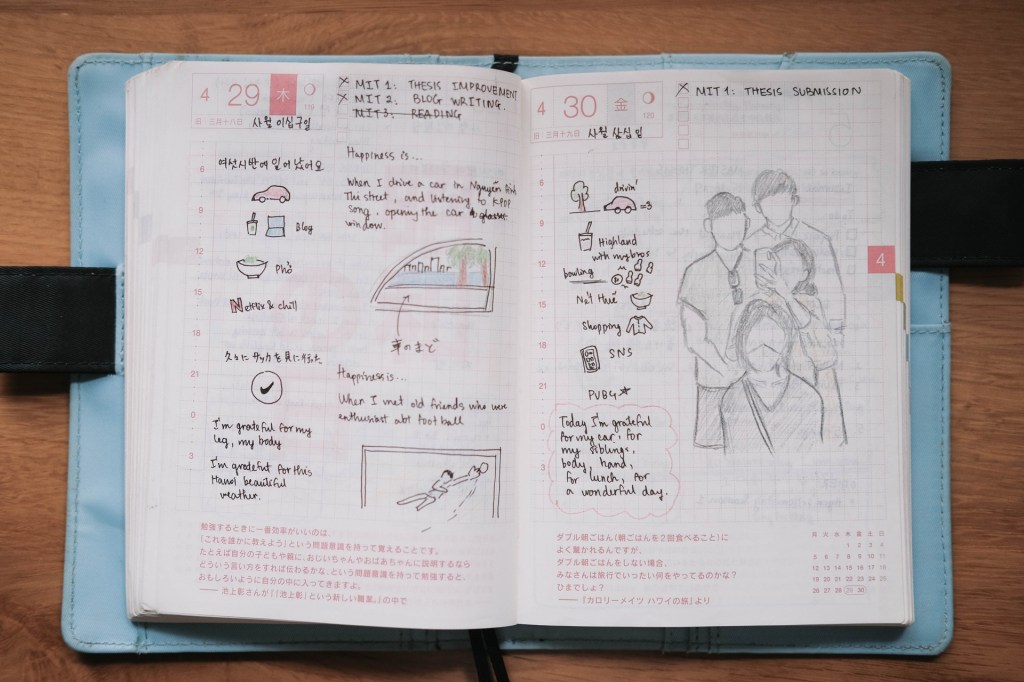 4 29 木
三月十八日
사월 이십구일
× MIT 1: THESIS IMPROVEMENT
× MIT 2: BLOG WRITING.
MIT 3: READING
여섯시반에 일어났어요
6
9
Blog
12
Phở
15
Netflix & chill
18
21
0
I'm grateful for my
leg, my body
3
I'm grateful for this
Hanoi beautiful
weather.
Happiness is...
When I drive a car in Nguyễn Đình
Thi street, and listening to KPOP
song, opening the car glasses
window.
車のまど
Happiness is...
When I met old friends who were
enthusiast abt football
勉強するときに一番効率がいいのは、
「これを誰かに教えよう」という問題意識を持って覚えることです。
たとえば自分の子どもや親に、おじいちゃんやおばあちゃんに説明するなら
どういう言い方をすれば伝わるかな、という問題意識を持って勉強すると、
おもしろいように自分の中に入ってきますよ。
── 池上彰さんが『「池上彰」という新しい職業。』の中で
4 30 金
120
三月十九日
사월 삼십일
× MIT 1: THESIS SUBMISSION
6
drivin'
=3
9
Highland
with my bros
12
bowling
15
Nét Huế
Shopping
18
SNS
21
PUBG
0
Today I'm grateful
for my car, for
my siblings,
body, hand,
for lunch, for
a wonderful day.
3
4
ダブル朝ごはん(朝ごはんを2回食べること)に
よく驚かれるんですが、
ダブル朝ごはんをしない場合、
みなさんは旅行でいったい何をやってるのかな？
ひまでしょ？
── 『カロリーメイツ ハワイの旅』より
月 火 水 木 金 土 日
1 2 3 4
5 6 7 8 9 10 11
12 13 14 15 16 17 18
19 20 21 22 23 24 25
26 27 28 29 30